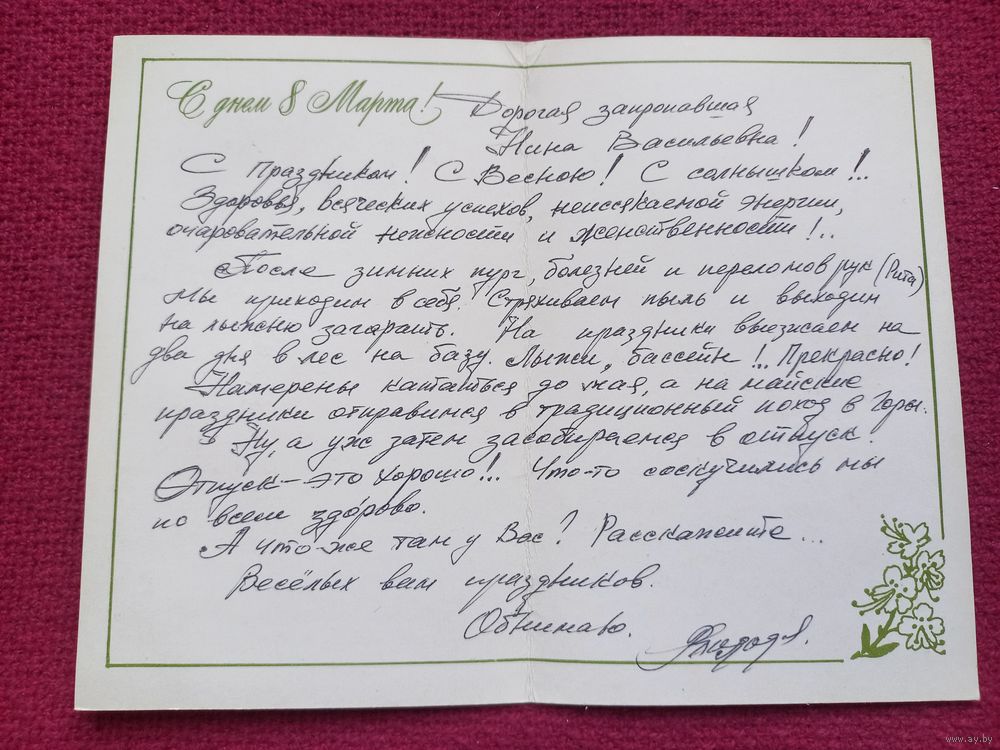 С днем 8 Марта! Дорогая запропавшая
Нина Васильевна!
С Праздником! С Весною! С солнышком!..
Здоровья, всяческих успехов, неиссякаемой энергии,
очаровательной нежности и женственности!..
После зимних пург, болезней и переломов рук (Рита)
мы приходим в себя. Стряхиваем пыль и выходим
на лыжню загорать. На праздники выезжаем на
два дня в лес на базу. Лыжи, бассейн!.. Прекрасно!
Намерены кататься до мая, а на майские
праздники отправимся в традиционный поход в Горы.
Ну, а уж затем засобираемся в отпуск.
Отпуск – это хорошо!!. Что-то соскучились мы
по всем здорово.
А что-же там у Вас? Расскажите...
Весёлых вам праздников.
Обнимаю.
www.ay.by